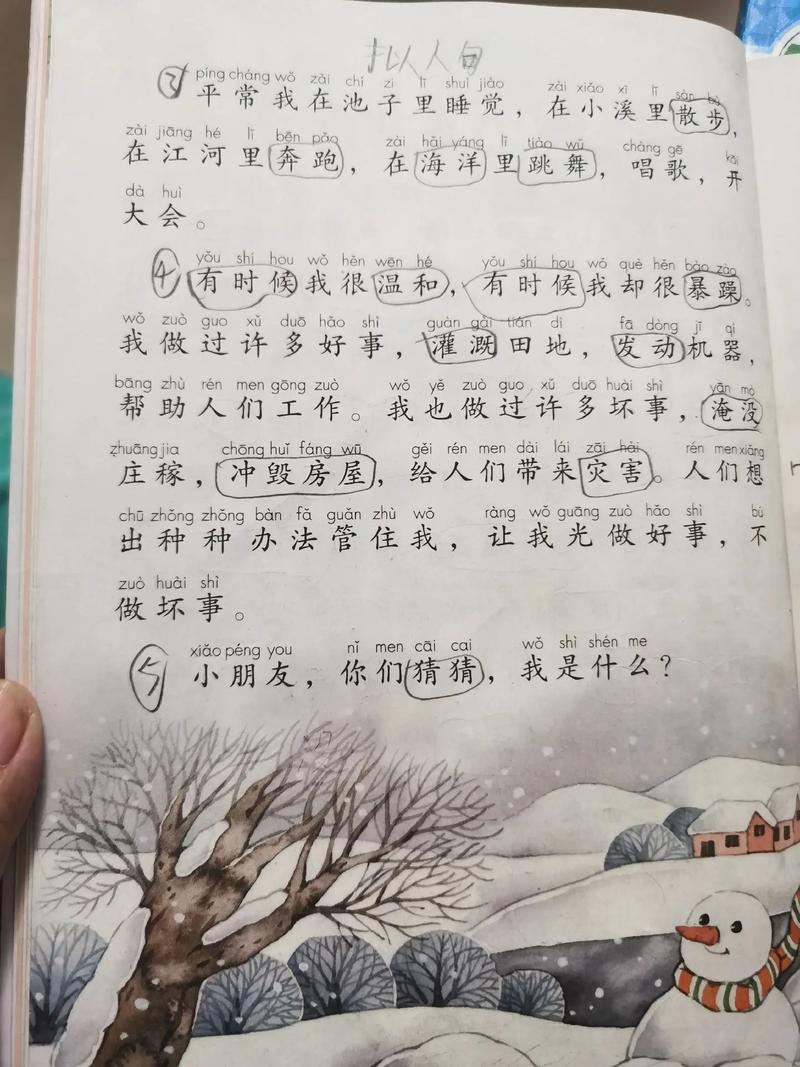 拟人句
③ píng cháng wǒ zài chí zi lǐ shuì jiào zài xiǎo xī lǐ sàn bù
平常我在池子里睡觉，在小溪里散步，
zài jiāng hé lǐ bēn pǎo zài hǎi yáng lǐ tiào wǔ chàng gē kāi
在江河里奔跑，在海洋里跳舞，唱歌，开
dà huì
大会。
④ yǒu shí hou wǒ hěn wēn hé yǒu shí hou wǒ què hěn bào zào
有时候我很温和，有时候我却很暴躁。
wǒ zuò guo xǔ duō hǎo shì guàn gài tián dì fā dòng jī qì
我做过许多好事，灌溉田地，发动机器，
bāng zhù rén men gōng zuò wǒ yě zuò guo xǔ duō huài shì yān mò
帮助人们工作。我也做过许多坏事，淹没
zhuāng jia chōng huǐ fáng wū gěi rén men dài lái zāi hài rén men xiǎng
庄稼，冲毁房屋，给人们带来灾害。人们想
chū zhǒng zhǒng bàn fǎ guǎn zhù wǒ ràng wǒ guāng zuò hǎo shì bú
出种种办法管住我，让我光做好事，不
zuò huài shì
做坏事。
⑤ xiǎo péng you nǐ men cāi cai wǒ shì shén me
小朋友，你们猜猜，我是什么？